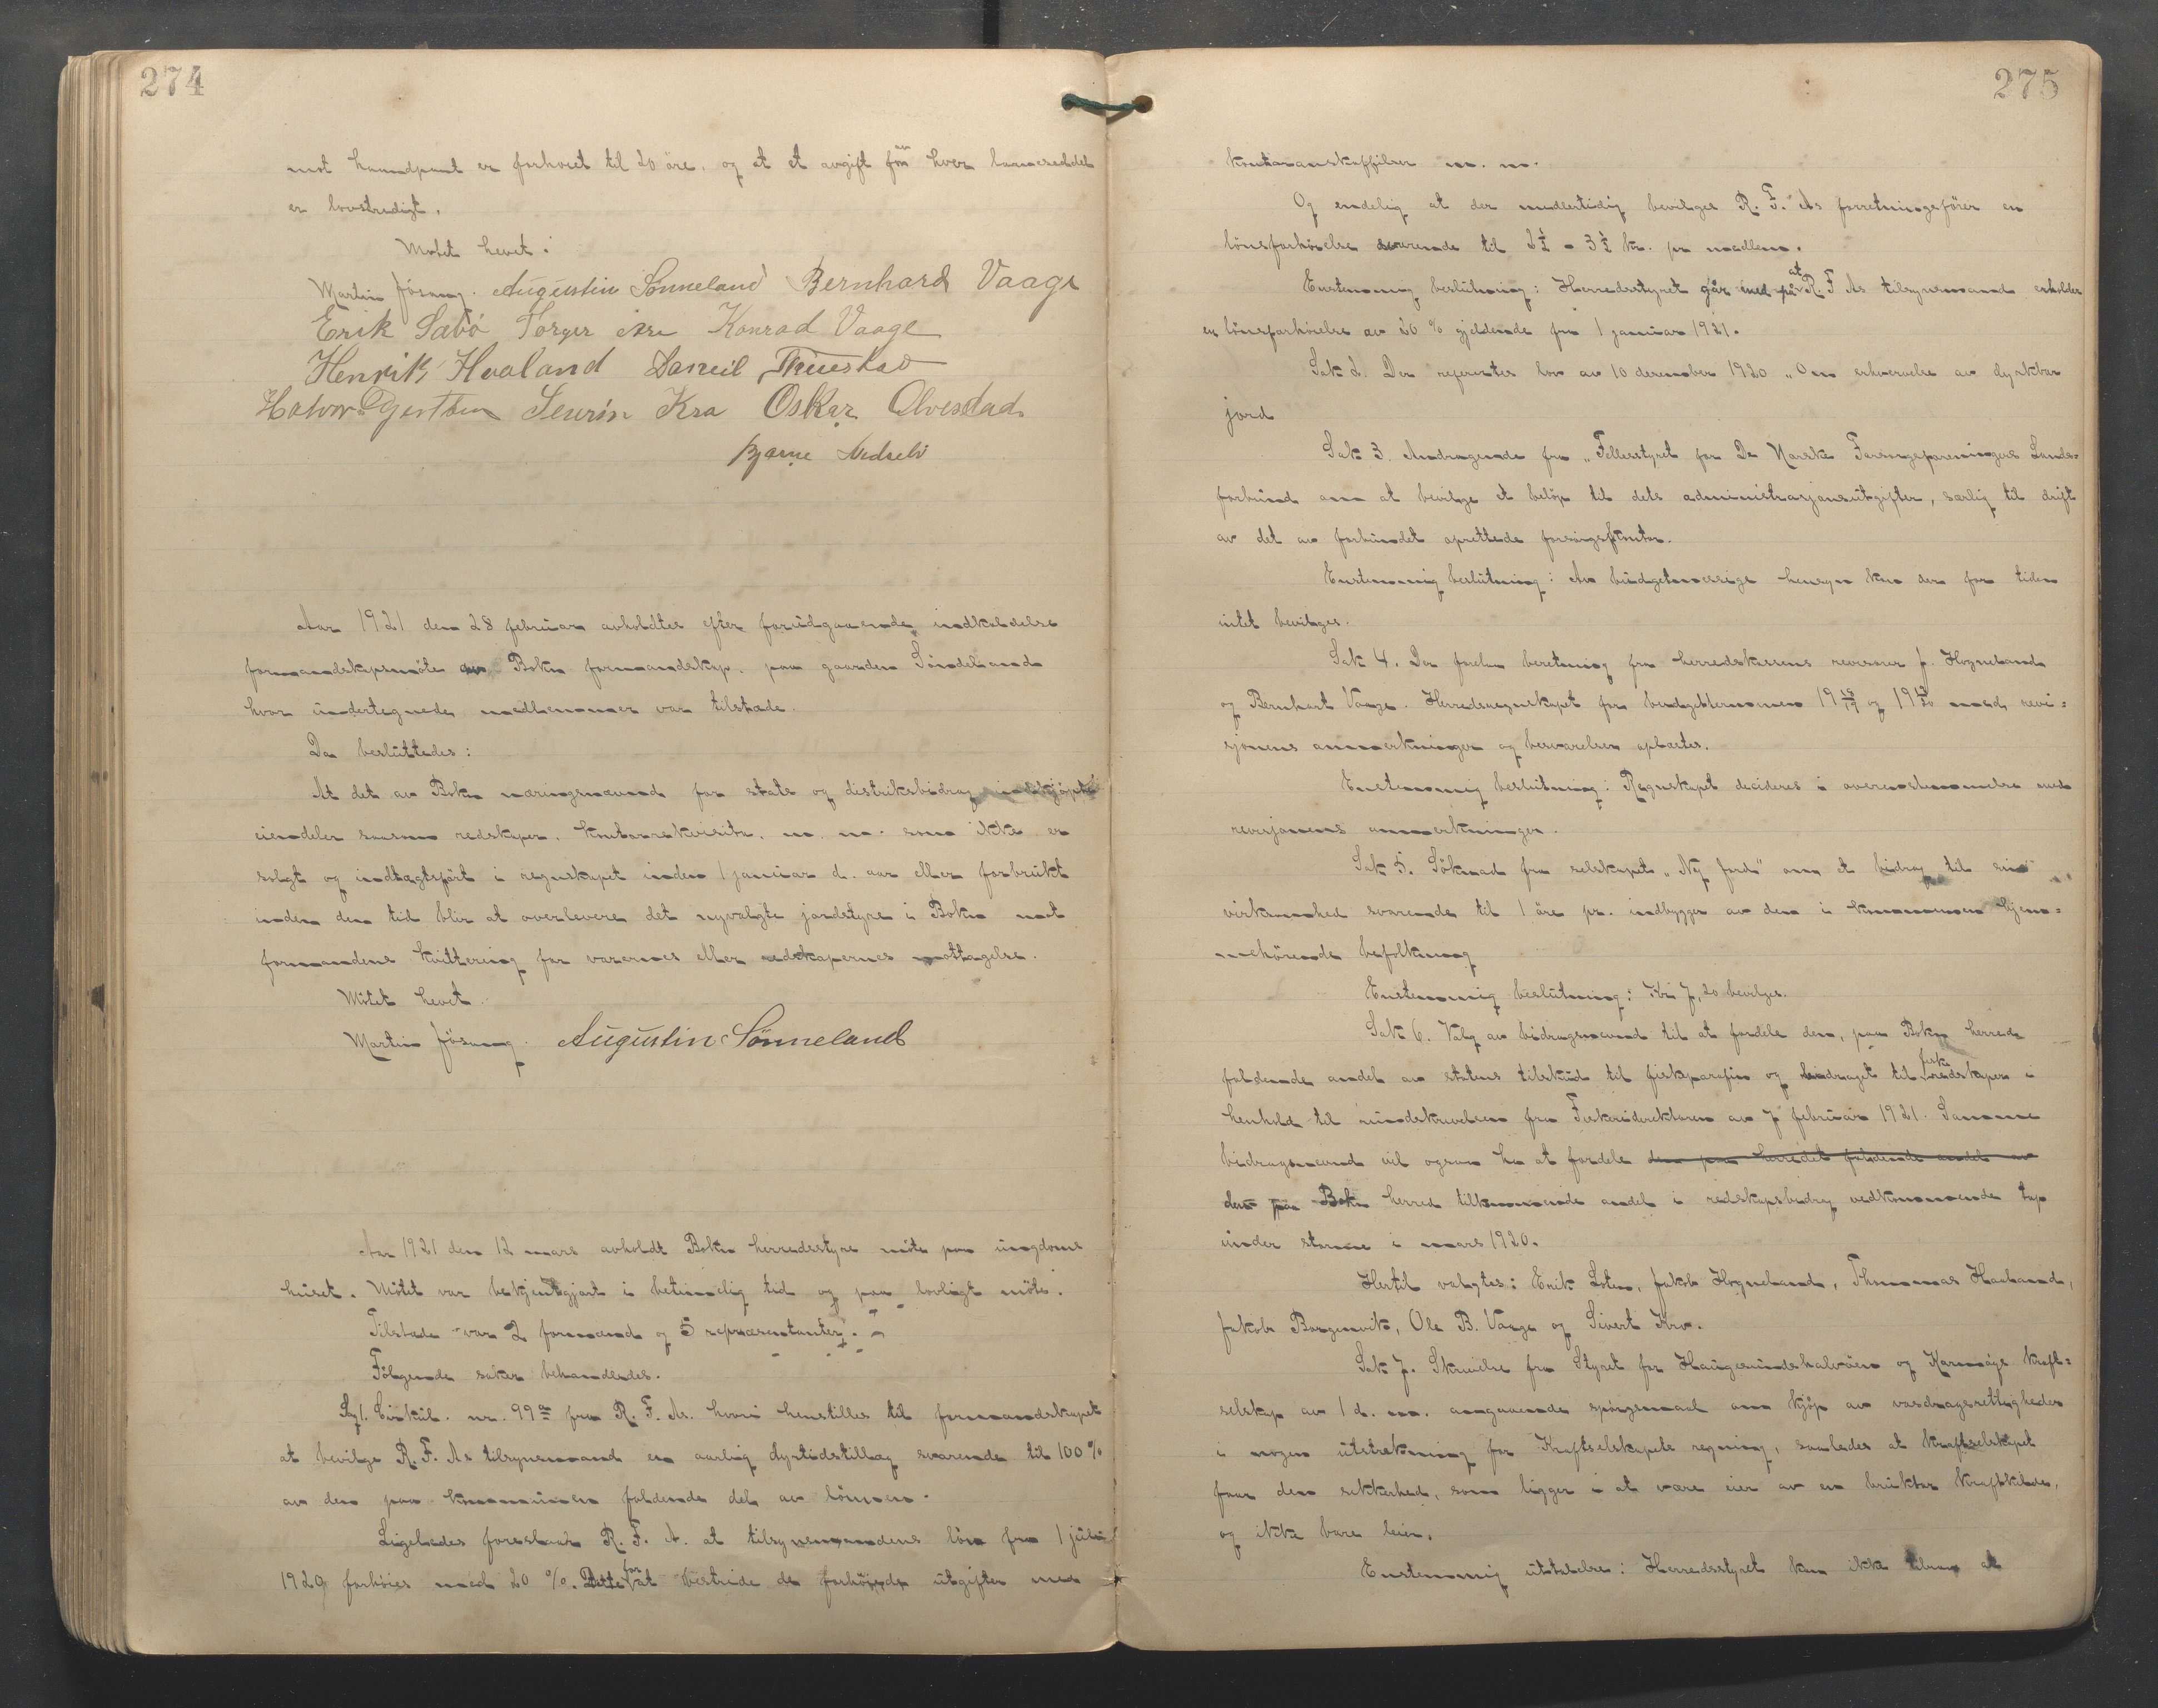 274
mot haandpant er forhøiet til 20 öre, og at et avgift for av hver laaneseddel
er lovstredigt.
Mötet hevet.
Martin Jösang. Augustin Sönneland Bernhard Vaage
Erik Sæbö Torger Konrad Vaage
Henrik Hoaland Daneil
Halvor Gjertsen Seurin Kro Oskar Alvestad
Bjarne
Aar 1921 den 28 februar avholdtes efter forutgaaende indkaldelse
formandskapsmöte av Bokn formandskap, paa gaarden Sündeland
hvor undertegnede medlemmer var tilstæde.
Da besluttedes:
At det av Bokn næringsnævnd for stats og distriksbidrag indkjöpte
eiendeler saasom redskaper, kontorrekvisita, m. m. som ikke er
solgt og indtægtsfört i regnskapet inden 1 januar d. aar eller forbrukt
inden den tid blir at overlevere det nyvalgte jordstyre i Bokn mot
formandens kvittering for varernes eller redskapernes mottagelse.
Mötet hevet.
Martin Jösang. Augustin Sönneland
Aar 1921 den 12 mars avholdt Bokn herredsstyre möte paa ungdoms
huset. Mötet var bekjentgjort i betimelig tid og paa lovligt möte.
Tilstede var 2 formænd og 5 repræsentanter.
Følgende saker behandledes.
Sak 1. Cirkül. nr. 99 a fra R. F. As. hvori henstilles til formandskapet
at bevilge R. F. As tilsynsmand en aarlig dyrtidstillæg svarende til 100 %
av den paa kommunen faldende del av lönnen.
Ligeledes foreslaar R. F. A. at tilsynsmandens lön fra 1 juli
1920 forhöies med 20 %. Dette for at bestride de forhöiede utgifter med
275
kontoranskaffelser m. m.
Og endelig at der midlertidig bevilges R. F. As forretningsförer en
lönsforhöielse svarende til 2½ a 3½ kr. pr medlem.
Enstemmig beslutning: Herredsstyret går med på at R. F As tilsynsmand erholder
en lönsforhöielse av 20 % gjeldende fra 1 januar 1921.
Sak 2. Der refereertes lov av 10 desember 1920 „Om erhvervelse av dyrkbar
jord
Sak 3. Andragende fra „Fellesstyret for De Norske Forsorgsforeningers Lands=
forbund om at bevilge et belöp til dets administrasjonsutgifter, særlig til drift
av det av forbundet oprettede forsorgskontor.
Enstemmig beslutning: Av budgetmessige hensyn kan der for tiden
intet bevilges.
Sak 4. Der forelaa beretning fra herredskassens revisorer J. Hogneland
og Bernhart Vaage. Herredsregnskapet for budgetterminen 19 18/19 og 19 19/20 med revi=
sjonens anmerkninger og besvarelser oplæstes.
Enstemmig beslutning: Regnskapet decideres i overensstemmelse med
revisjonens anmerkninger.
Sak 5. Söknad fra selskapet „Ny Jord" om et bidrag til sin
virksomhed svarende til 1 öre pr. indbygger av den i kommunen hjem=
mehörende befolkning
Enstemmig beslutning: Kr 7,20 bevilges.
Sak 6. Valg av bidragsnævnd til at fordele den, paa Bokn herrede
faldende andel av statens tilskud til fiskparafin og bidraget til fiske redskaper i
henhold til rundskrivelsen fra Fiskeridirektören av 7 februar 1921. Samme
bidragsnævnd vil ogsaa ha at fordele den paa herredet faldende andel av
den paa Bokn herred tilkommende andel i redskapsbidrag vedkommende tap
under storme i mars 1920.
Hertil valgtes: Erik Loten, Jakob Hogneland, Thommas Haaland,
Jakob Borgenvik, Ole B. Vaage og Sivert Kro.
Sak 7. Skrivelse fra Styret for Haugesundshalvöen og Karmöys kraft=
selskap av 1 d. m. angaaende spörgsmaal om kjöp av vasdragsrettigheder
i nogen utstrekning for Kraftselskapets regning, saaledes at kraftselskapet
faar den sikkerhed, som ligger i at være eier av en brukbar kraftkilde,
og ikke bare leier.
Enstemmig uttalelse: Herredsstyret kan ikke tilraa at